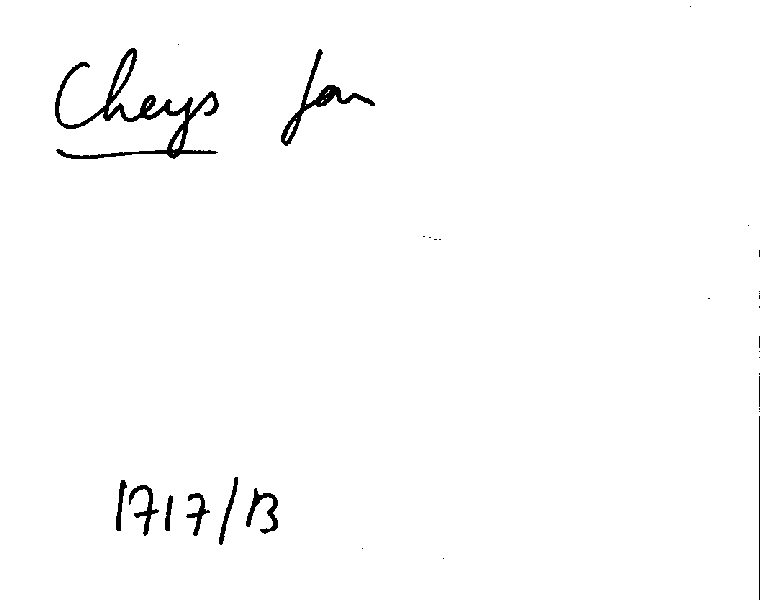 Cheys Jan
1717/13